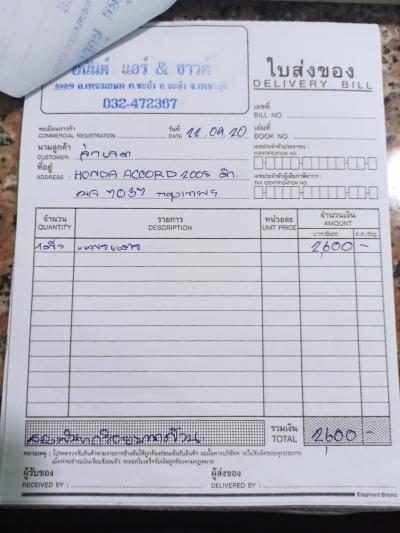 อนันต์ แอร์ & ซาวด์
599/9 ถ.เพชรเกษม ต.ชะอำ อ.ชะอำ จ.เพชรบุรี
032-472367
ใบส่งของ
DELIVERY BILL
เลขที่
BILL NO.
ทะเบียนการค้า
COMMERCIAL REGISTRATION
วันที่ 22,09,20
DATE
เล่มที่
BOOK NO.
นามลูกค้า
CUSTOMER:
เลขประจำตัวประชาชน :
IDENTIFICATION NO.
ที่อยู่
ADDRESS : HONDA ACCORD 2005
7037 กรุงเทพฯ
เลขประจำตัวผู้เสียภาษีอากร :
TAX IDENTIFICATION NO.
จำนวน
QUANTITY
รายการ
DESCRIPTION
หน่วยละ
UNIT PRICE
จำนวนเงิน
AMOUNT
บาท/Baht
ส.ต./Stg.
1ตัว 2,600 -
สองพันหกร้อยบาทถ้วน
รวมเงิน
TOTAL
2,600 -
หมายเหตุ : โปรดตรวจรับสินค้าตามรายการข้างต้นให้ถูกต้องก่อนเซ็นรับสินค้า มิฉะนั้นทางบริษัทฯ จะไม่รับผิดชอบทุกประการ
เมื่อท่านชำระเงินเรียบร้อยแล้ว จะออกใบเสร็จรับเงินถูกต้องตามกฎหมาย
ผู้รับของ
RECEIVED BY :
ผู้ส่งของ
DELIVERED BY :
Elephant Brand